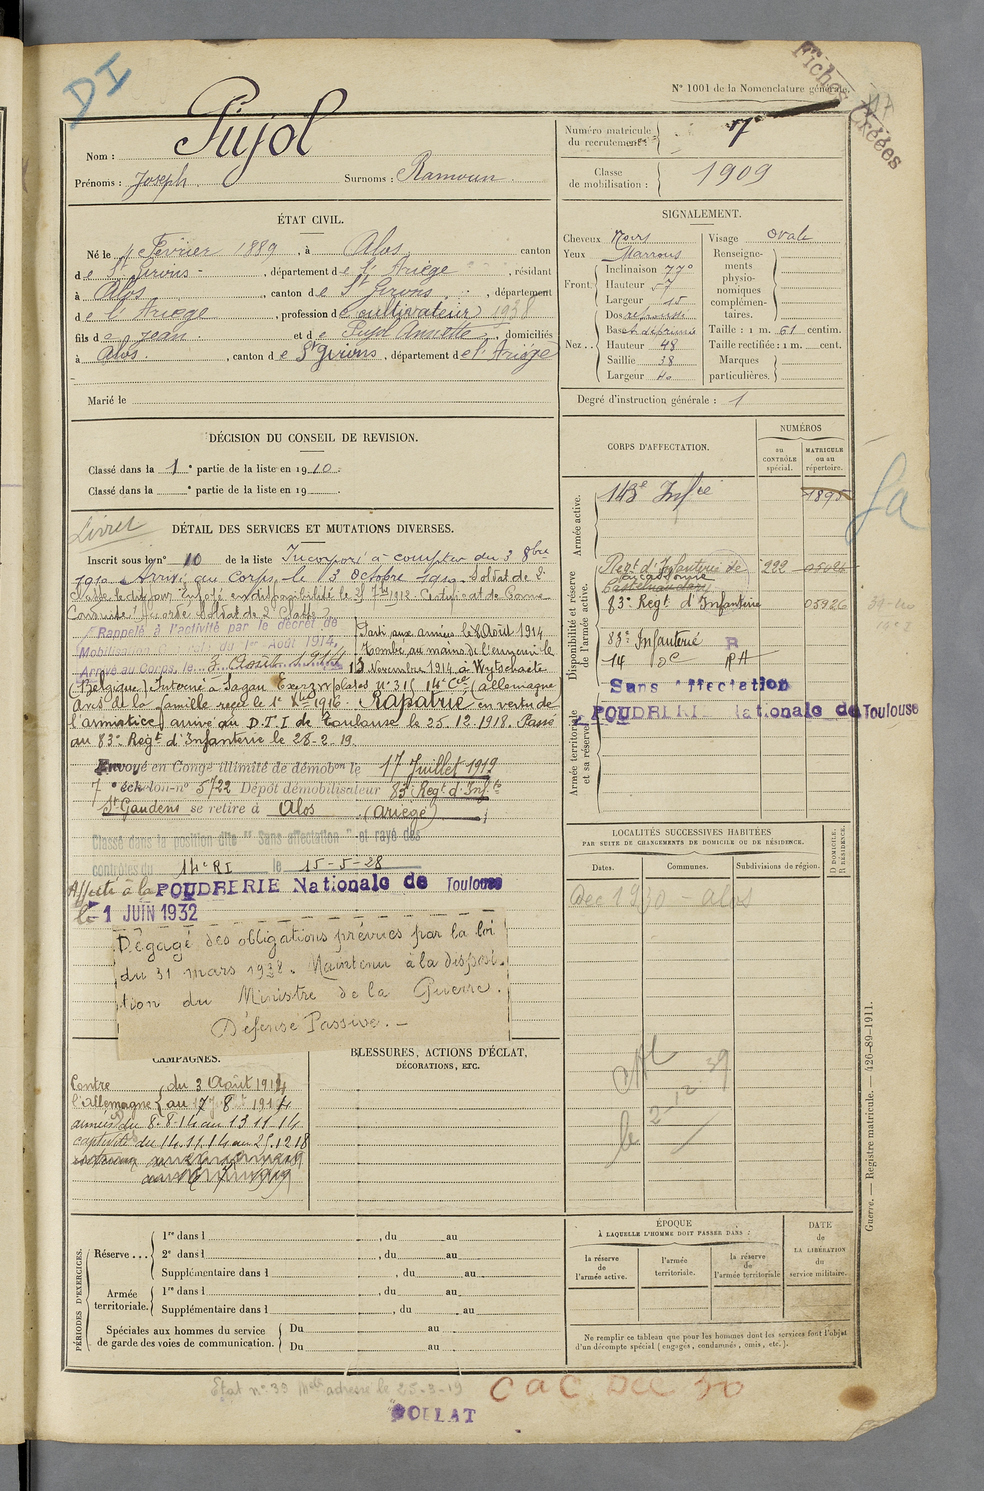 DI
N° 1001 de la Nomenclature générale.
Fiches Créées
Nom : Pujol
Prénoms : Joseph Surnoms : Ramoun
Numéro matricule du recrutement : 7
Classe de mobilisation : 1909
ÉTAT CIVIL.
Né le 4 Février 1889, à Alos canton
de St Girons, département de l'Ariège, résidant
à Alos, canton de St Girons, département
de l'Ariège, profession de cultivateur 1938
fils de Jean et de Pujol Annette, domiciliés
à Alos, canton de St Girons, département de l'Ariège
Marié le
SIGNALEMENT.
Cheveux Noirs
Yeux Marrons
Front. Inclinaison 77°
Hauteur 57
Largeur 15
Nez.. Dos
Base
Hauteur 48
Saillie 38
Largeur 40
Visage Ovale
Renseignements physionomiques complémentaires.
Taille : 1 m. 61 centim.
Taille rectifiée : 1 m. cent.
Marques particulières.
Degré d'instruction générale : 1
DÉCISION DU CONSEIL DE REVISION.
Classé dans la 1e partie de la liste en 1910.
Classé dans la e partie de la liste en 19
Livret
DÉTAIL DES SERVICES ET MUTATIONS DIVERSES.
Inscrit sous le n° 10 de la liste Incorporé à compter du 3 8bre
1910 Arrivé au Corps le 3 Octobre 1910. Soldat de 2e
classe le dit jour. Envoyé en disponibilité le 25 7bre 1912. Certificat de Bonne
Conduite accordé. Soldat de 2e Classe
Rappelé à l'activité par le décret de
Mobilisation du 1er Août 1914,
Arrivé au Corps, le 3 Août 1914
Parti aux armées le 8 Août 1914
Tombé au mains de l'ennemi le
13 Novembre 1914 à Wytschaete
(Belgique) Interné à Sagan 14e Cie (allemagne
Avis de la famille reçu le 1er Xbre 1916. Rapatrié en vertu de
l'armistice, arrivé au D.T.I de Toulouse le 25.12.1918. Passé
au 83e Regt d'Infanterie le 28-2-19.
Envoyé en Congé illimité de démobon le 17 Juillet 1919
7e échelon-n° 5722 Dépôt démobilisateur 83e Regt d'Infie
St Gaudens se retire à Alos (Ariège)
Classé dans la position dite "Sans affectation" et rayé des
contrôles du 14e RI le 15-5-28
Affecté à la POUDRERIE Nationale de Toulouse
le 1 JUIN 1932
Dégagé des obligations prévues par la loi
du 31 mars 1928. Maintenu à la disposi-
tion du Ministre de la Guerre.
Défense Passive.
CORPS D'AFFECTATION.
NUMÉROS
au CONTRÔLE spécial.
MATRICULE ou au répertoire.
Armée active.
143e Infie 1895
Disponibilité et réserve de l'armée active.
Regt d'Infanterie de 222
Carcassonne
Castelnaudary
83e Regt d'Infanterie 05926
83e Infanterie R
14 de RA
Sans Affectation
Armée territoriale et sa réserve.
POUDRERIE Nationale de Toulouse
LOCALITÉS SUCCESSIVES HABITÉES
PAR SUITE DE CHANGEMENTS DE DOMICILE OU DE RÉSIDENCE.
Dates. Communes. Subdivisions de région. D DOMICILE, R RÉSIDENCE.
Dec 1930 - Alos
le 2-12 39
CAMPAGNES.
Contre l'Allemagne
du 3 Août 1914
au 7 8 1914
armées du 8.8.14 au 13.11.14
captivité du 14.11.14 au 25.12.18
BLESSURES, ACTIONS D'ÉCLAT,
DÉCORATIONS, ETC.
PÉRIODES D'EXERCICES.
Réserve... 1re dans l , du au
2e dans l , du au
Supplémentaire dans l , du au
Armée territoriale. 1re dans l , du au
Supplémentaire dans l , du au
Spéciales aux hommes du service de garde des voies de communication. Du au
Du au
ÉPOQUE
À LAQUELLE L'HOMME DOIT PASSER DANS :
la réserve de l'armée active.
l'armée territoriale.
la réserve de l'armée territoriale
DATE DE LA LIBÉRATION du service militaire.
Ne remplir ce tableau que pour les hommes dont les services font l'objet
d'un décompte spécial (engagés, condamnés, omis, etc.).
Guerre. — Registre matricule. — 426-89-1911.
Etat n° 39 adresse le 25-3-19
CaC Dec 30
SOLLAT